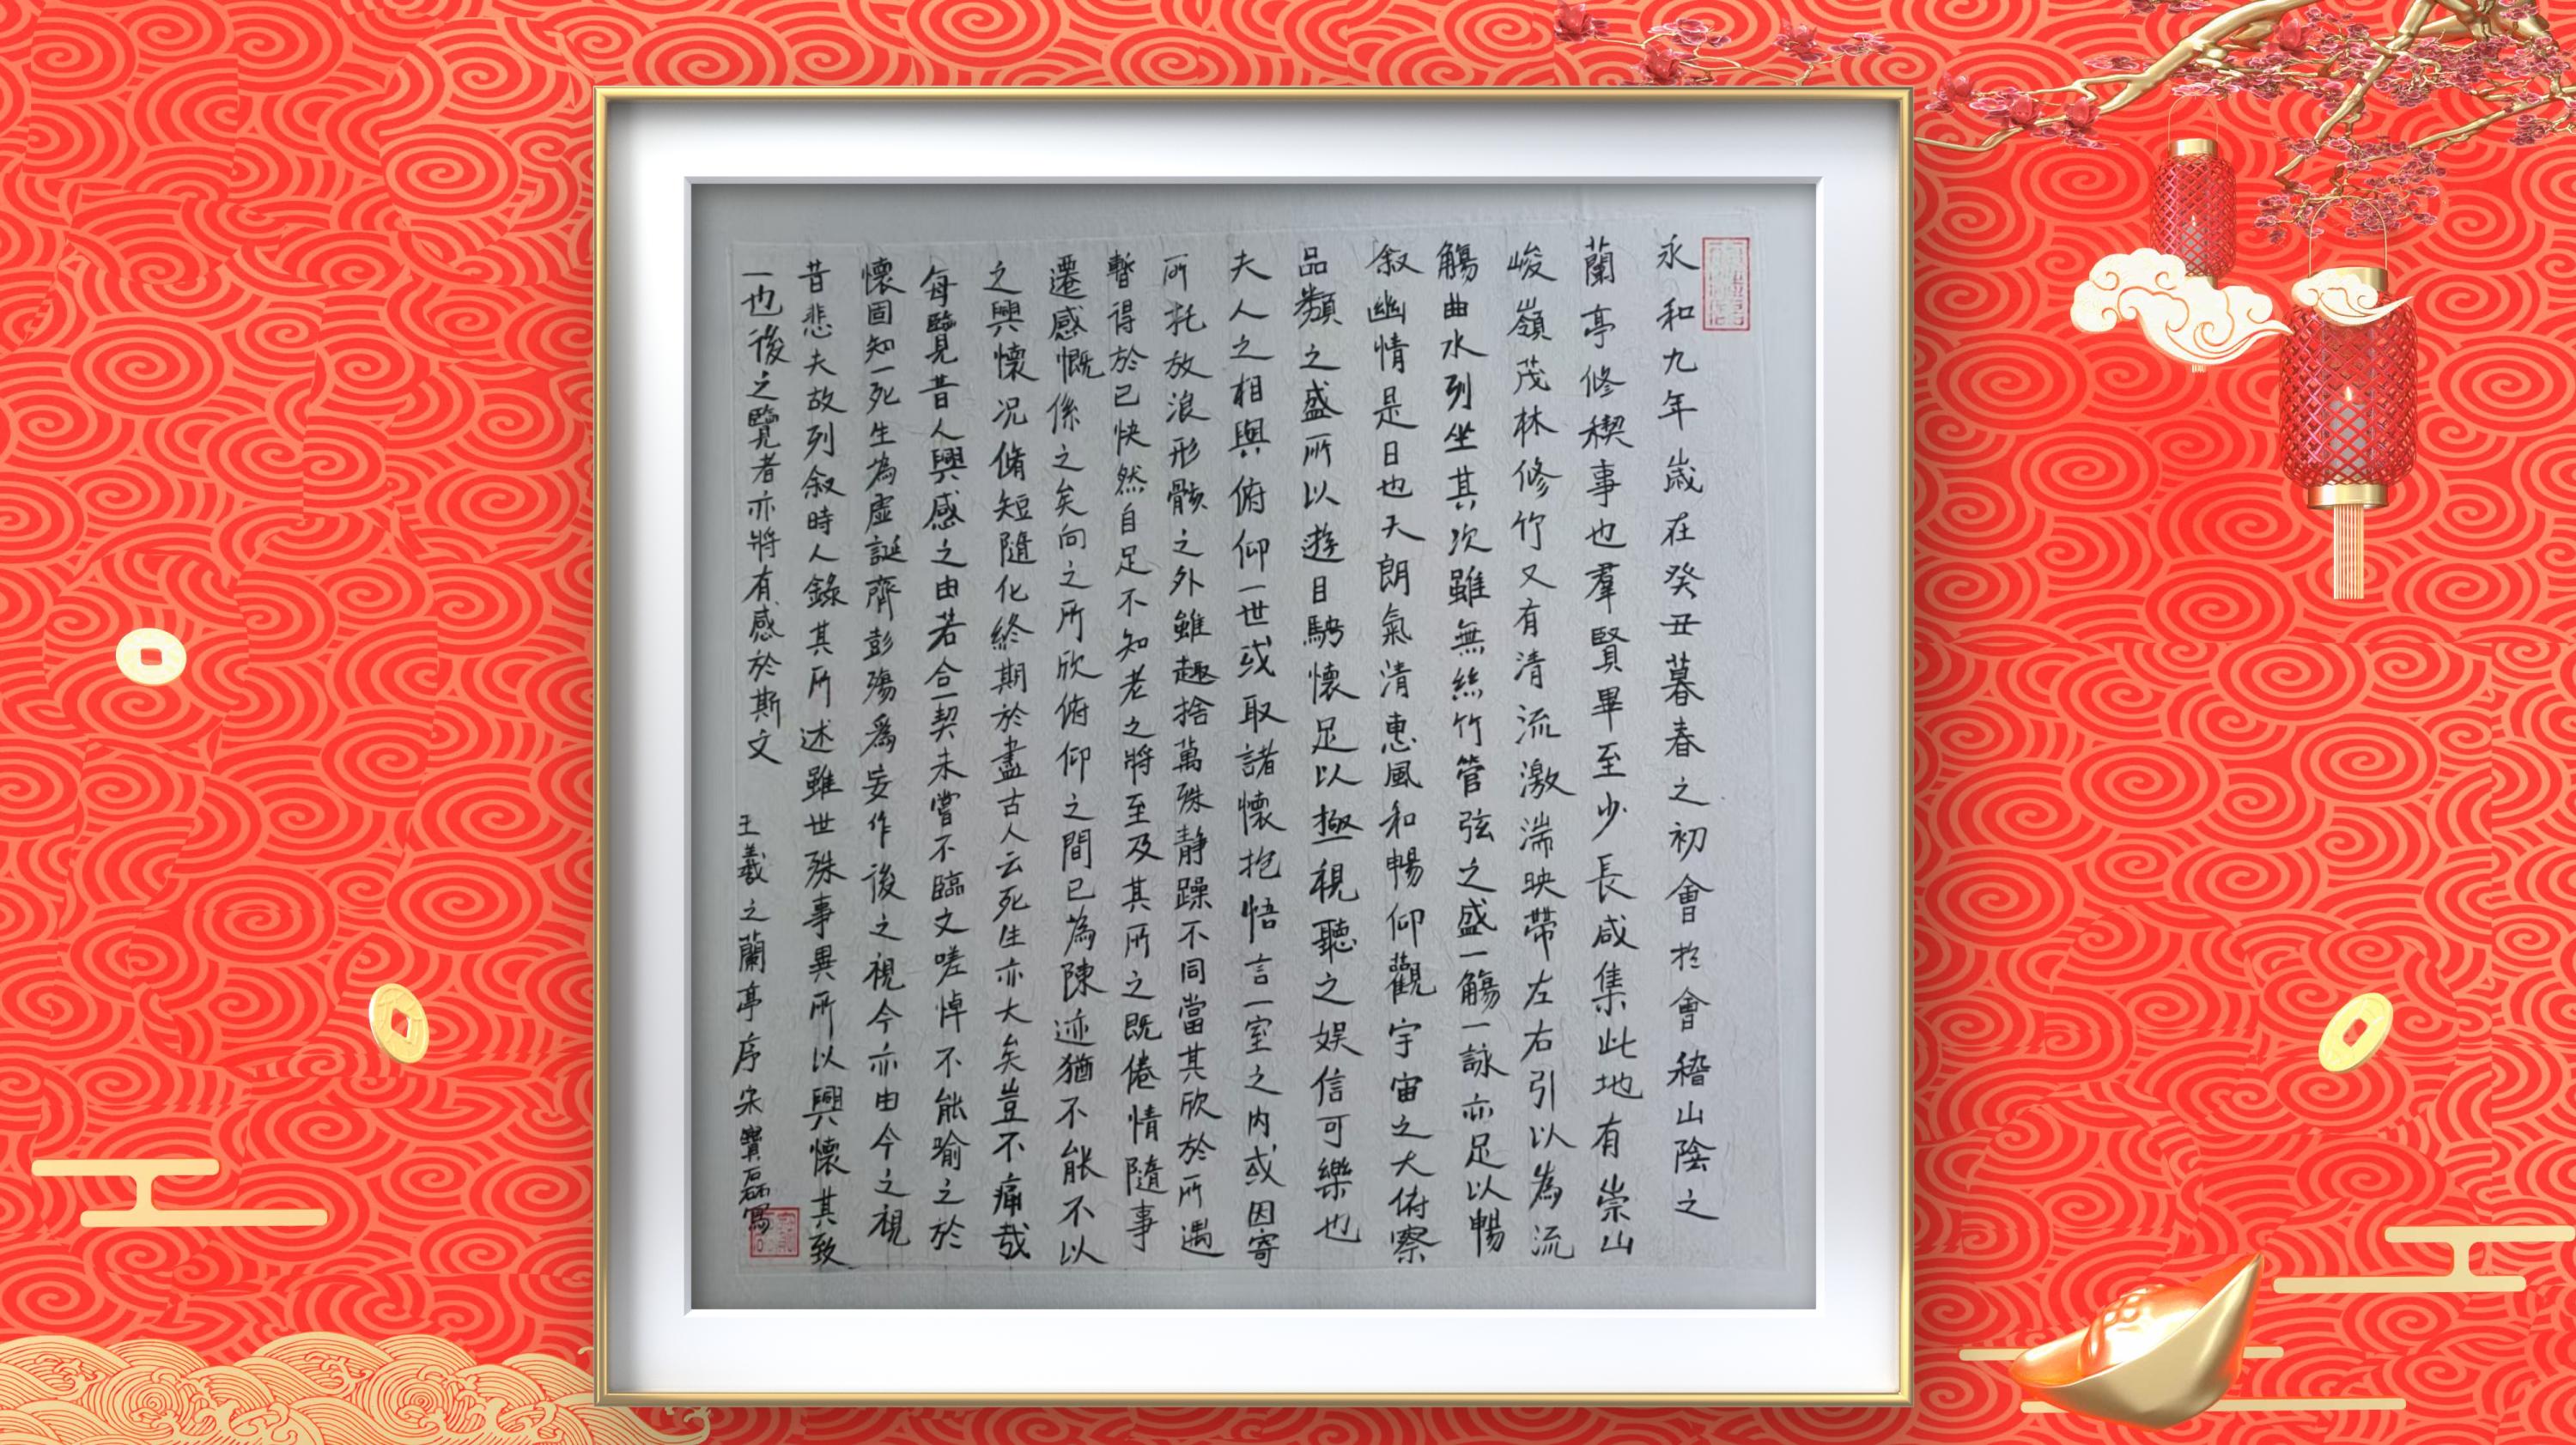 永和九年歲在癸丑暮春之初會於會稽山陰之
蘭亭修稧事也羣賢畢至少長咸集此地有崇山
峻嶺茂林修竹又有清流激湍映帶左右引以為流
觴曲水列坐其次雖無絲竹管弦之盛一觴一詠亦足以暢
叙幽情是日也天朗氣清惠風和暢仰觀宇宙之大俯察
品類之盛所以遊目騁懷足以極視聽之娱信可樂也
夫人之相與俯仰一世或取諸懷抱悟言一室之内或因寄
所託放浪形骸之外雖趣捨萬殊静躁不同當其欣於所遇
暫得於己快然自足不知老之將至及其所之既倦情隨事
遷感慨係之矣向之所欣俯仰之間已為陳迹猶不能不以
之興懷況脩短隨化終期於盡古人云死生亦大矣豈不痛哉
每覽昔人興感之由若合一契未嘗不臨文嗟悼不能喻之於
懷固知一死生為虛誕齊彭殤爲妄作後之視今亦由今之視
昔悲夫故列叙時人錄其所述雖世殊事異所以興懷其致
一也後之覽者亦將有感於斯文
王羲之蘭亭序宋寶磊寫